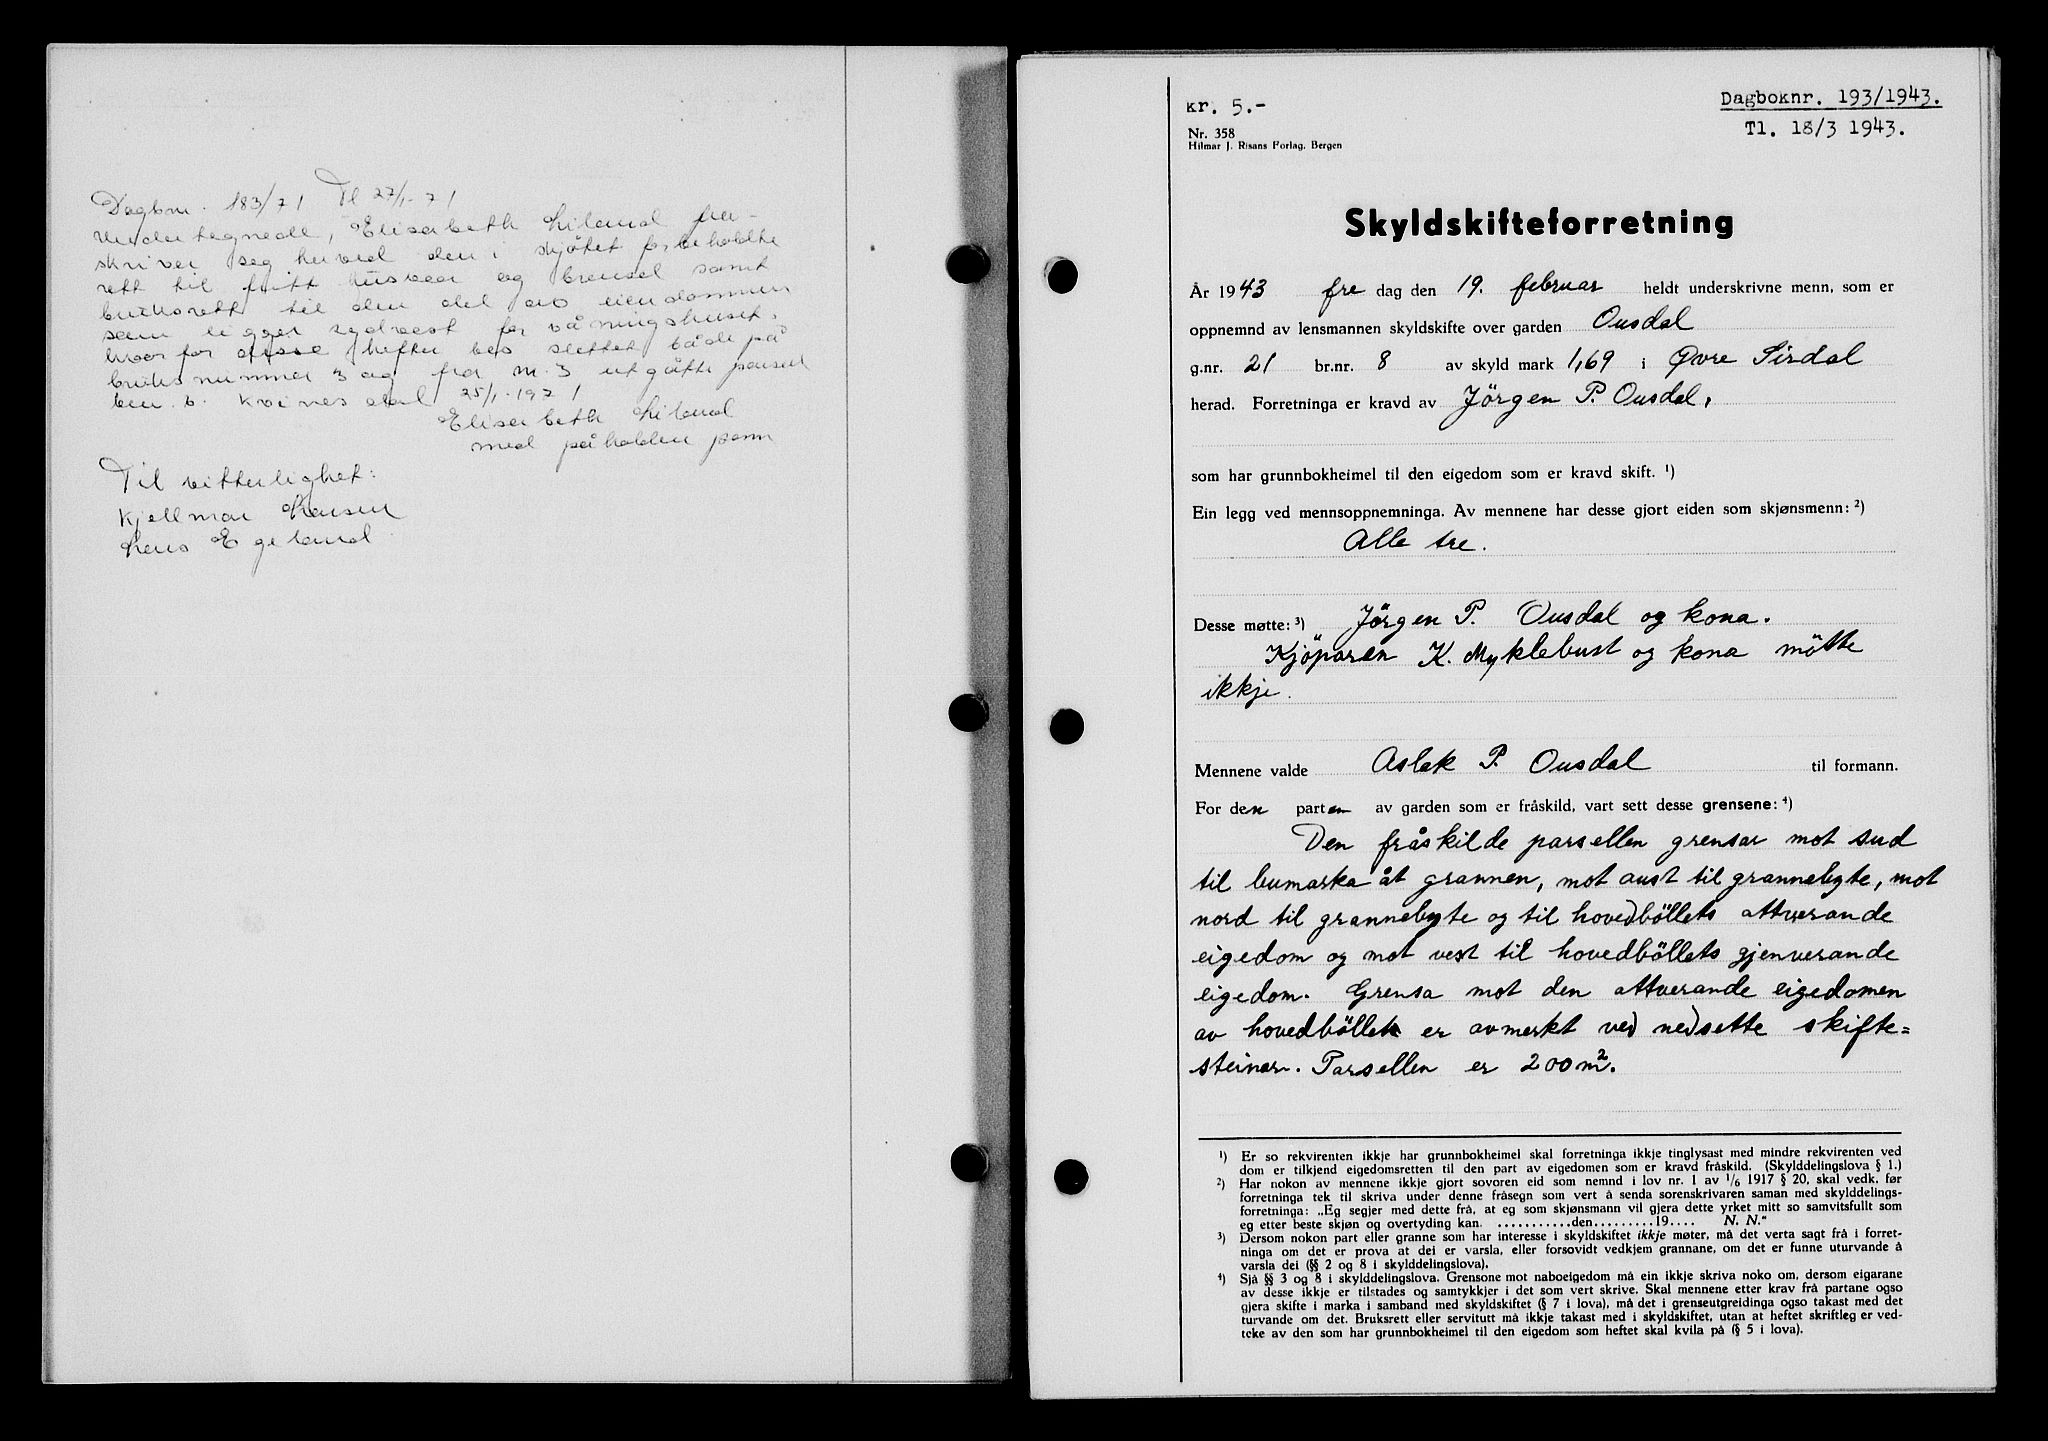 Dagbnr. 183/71 Tl 27/1-71
Undertegnede, Elisabeth Liland fra-
skriver seg herved den i skjøtet forbeholdte
rett til fritt husvær og brensel samt
bruksrett til den del av eiendommen
som ligger sydvest for våningshuset,
hvorfor disse hefter bes slettet både på
bruksnummer 3 og fra nr. 3 utgåtte parsell
bnr. 6. Kvinesdal 25/1-1971
Elisabeth Liland
med påholden penn
Til vitterlighet:
Kjellmar Larsen
Lars Egeland
kr. 5.-
Dagboknr. 193/1943.
Tl. 18/3 1943.
Nr. 358
Hilmar J. Risans Forlag, Bergen
Skyldskifteforretning
År 1943 fre dag den 19. februar heldt underskrivne menn, som er
oppnemnd av lensmannen skyldskifte over garden Ousdal
g.nr. 21 br.nr. 8 av skyld mark 1,69 i Øvre Sirdal
herad. Forretninga er kravd av Jörgen P. Ousdal,
som har grunnbokheimel til den eigedom som er kravd skift. ¹)
Ein legg ved mennsoppnemninga. Av mennene har desse gjort eiden som skjønsmenn: ²)
Alle tre.
Desse møtte: ³) Jörgen P. Ousdal og kona.
Kjöparen K. Myklebust og kona mötte
ikkje.
Mennene valde Aslak P. Ousdal til formann.
For den parten av garden som er fråskild, vart sett desse grensene: ⁴)
Den fråskilde parsellen grensar mot sud
til bumarka åt grannen, mot aust til grannebyte, mot
nord til grannebyte og til hovedböllets attverande
eigedom og mot vest til hovedböllets gjenverande
eigedom. Grensa mot den attverande eigedomen
av hovedböllet er avmerkt ved nedsette skifte=
steinar. Parsellen er 200 m².
¹) Er so rekvirenten ikkje har grunnbokheimel skal forretninga ikkje tinglysast med mindre rekvirenten ved
dom er tilkjend eigedomsretten til den part av eigedomen som er kravd fråskild. (Skylddelingslova § 1.)
²) Har nokon av mennene ikkje gjort sovoren eid som nemnd i lov nr. 1 av 1/6 1917 § 20, skal vedk. før
forretninga tek til skriva under denne fråsegn som vert å senda sorenskrivaren saman med skylddelings-
forretninga: „Eg segjer med dette frå, at eg som skjønsmann vil gjera dette yrket mitt so samvitsfullt som
eg etter beste skjøn og overtyding kan. ...........den.........19.... N. N.“
³) Dersom nokon part eller granne som har interesse i skyldskiftet ikkje møter, må det verta sagt frå i forret-
ninga om det er prova at dei er varsla, eller forsovidt vedkjem grannane, om det er funne uturvande å
varsla dei (§§ 2 og 8 i skylddelingslova).
⁴) Sjå §§ 3 og 8 i skylddelingslova. Grensone mot naboeigedom må ein ikkje skriva noko om, dersom eigarane
av desse ikkje er tilstades og samtykkjer i det som vert skrive. Skal mennene etter krav frå partane ogso
gjera skifte i marka i samband med skyldskiftet (§ 7 i lova), må det i grenseutgreidinga ogso takast med det
turvande om det. Bruksrett eller servitutt må ikkje takast med i skyldskiftet, utan at heftet skriftleg er ved-
teke av den som har grunnbokheimel til den eigedom som heftet skal kvila på (§ 5 i lova).